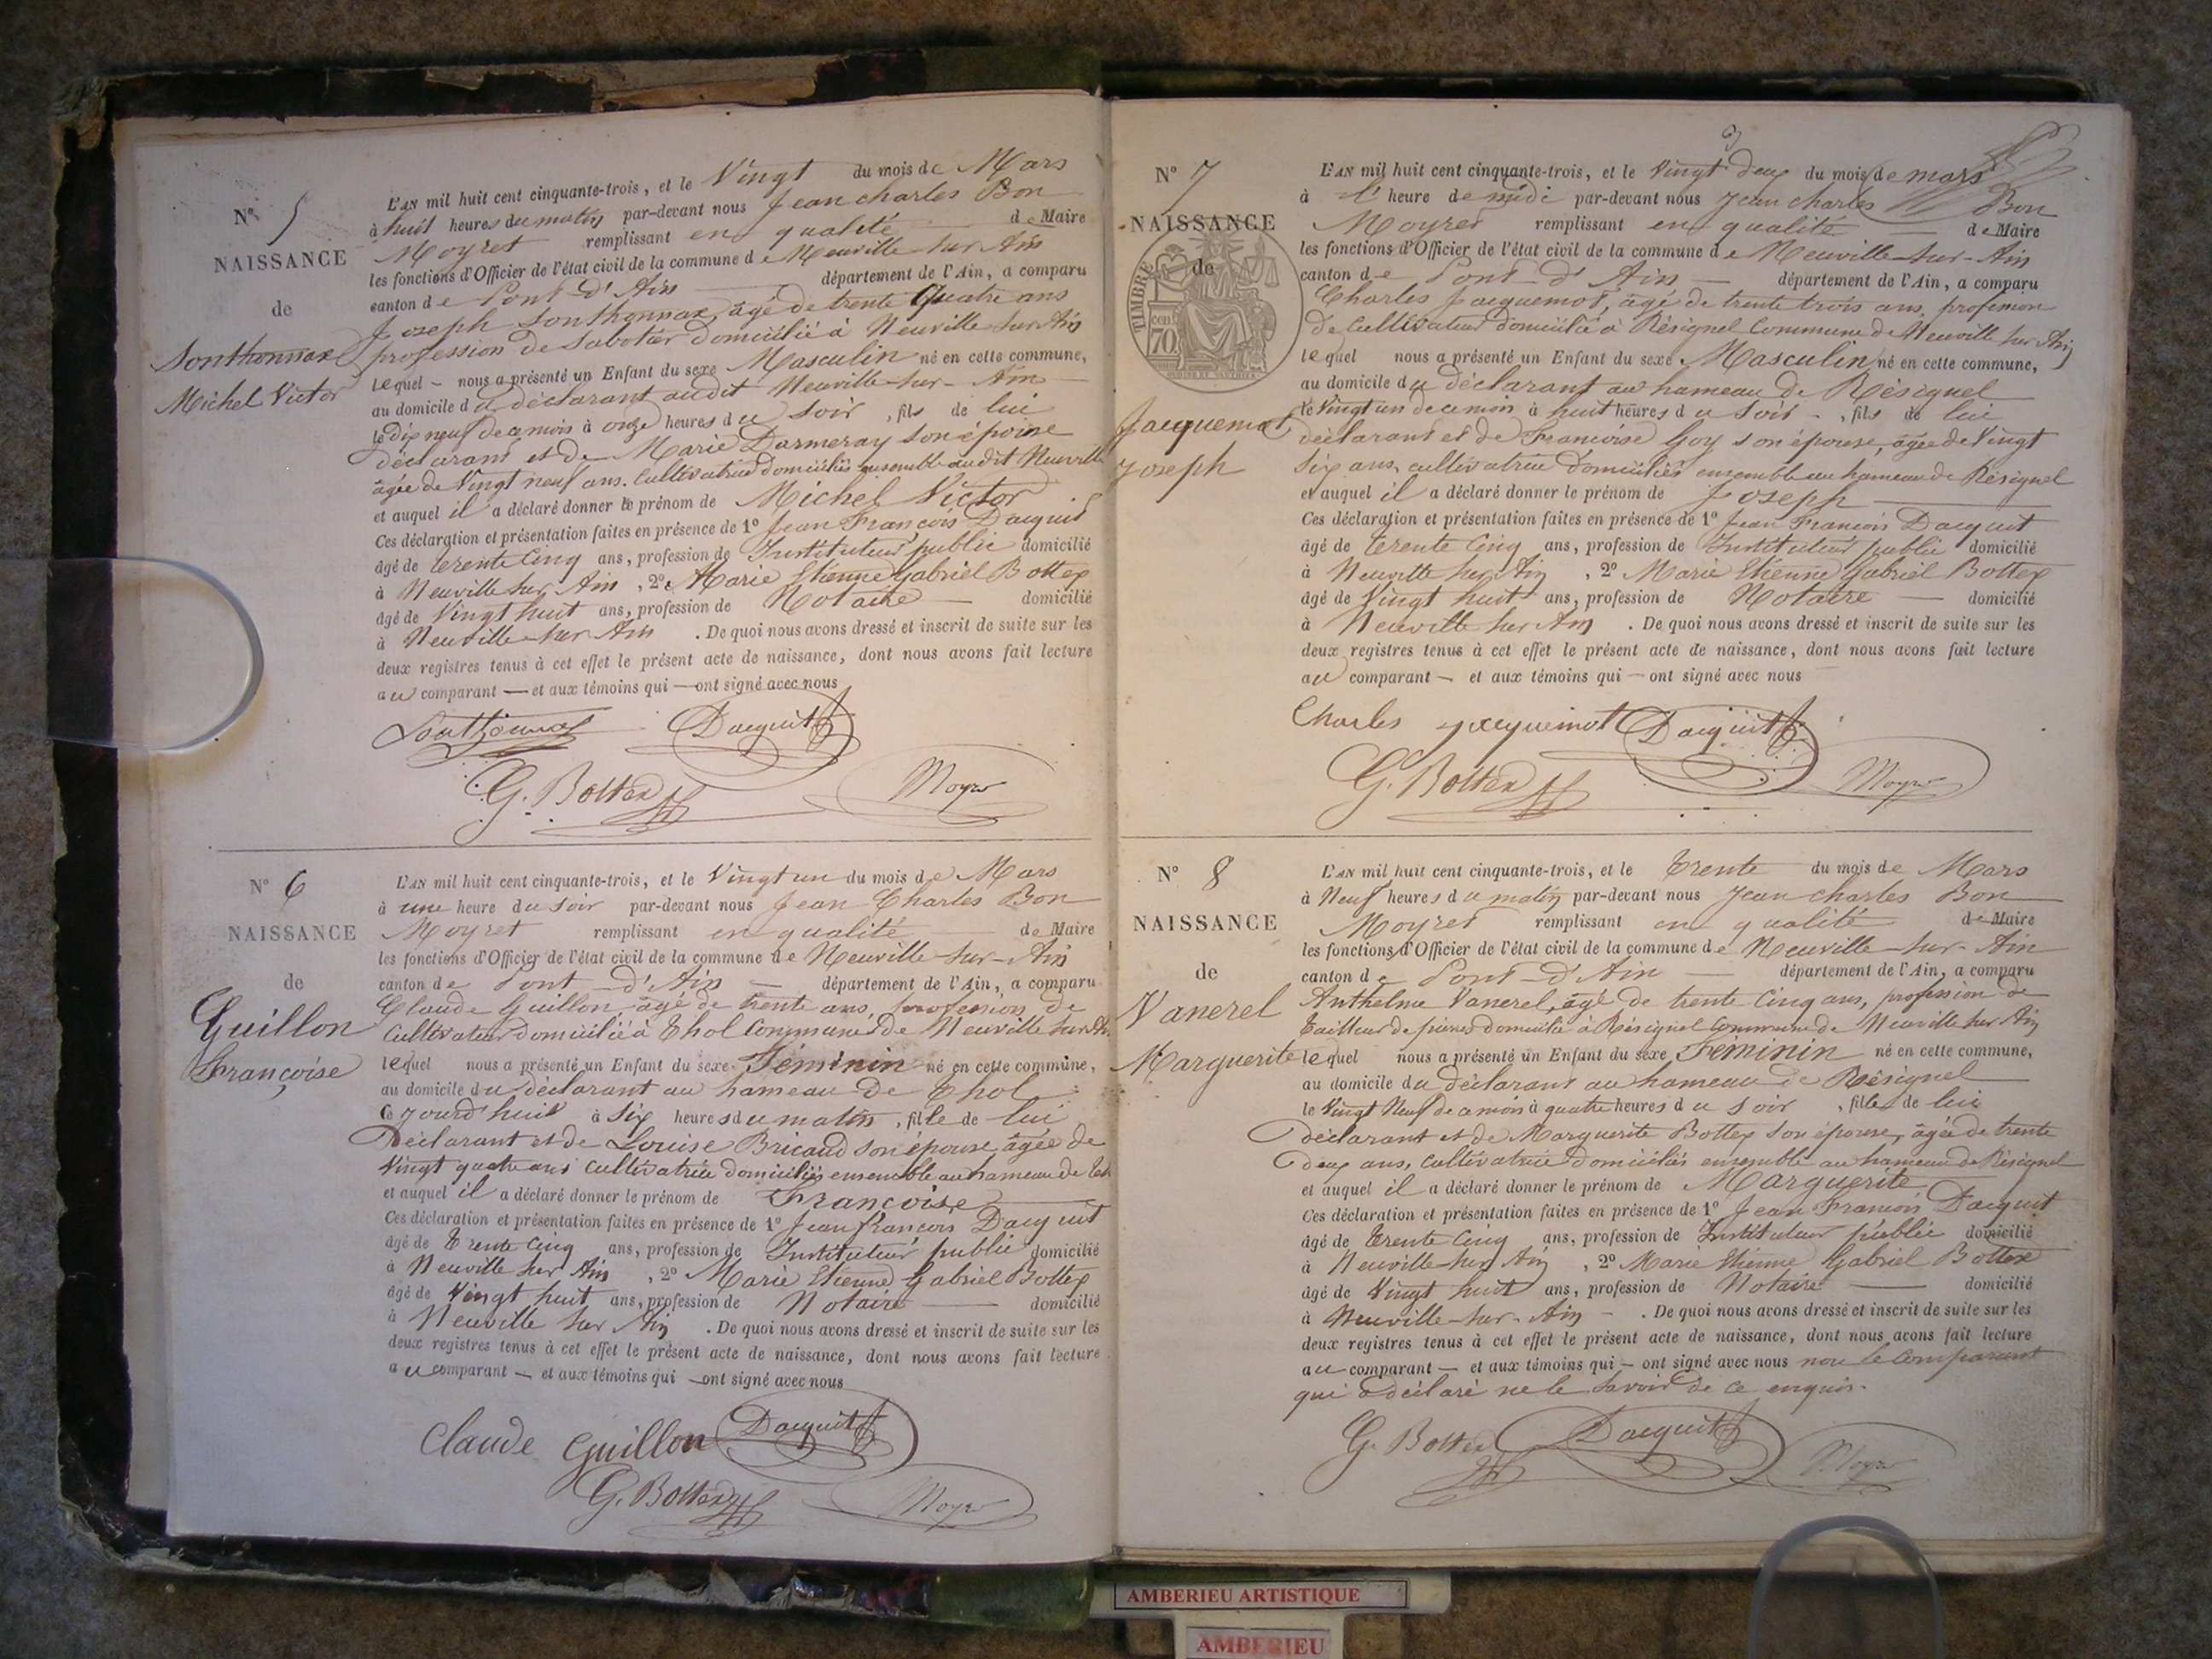 N° 5
NAISSANCE
de
Sonthonnax
Michel Victor
L'AN mil huit cent cinquante-trois, et le Vingt du mois de Mars
à huit heures du matin par-devant nous Jean Charles Bon
Moyret remplissant en qualité de Maire
les fonctions d'Officier de l'état civil de la commune de Neuville sur Ain
canton de Pont-d'Ain département de l'Ain, a comparu
Joseph Sonthonnax, âgé de trente Quatre ans
profession de Sabotier domicilié à Neuville sur Ain
lequel – nous a présenté un Enfant du sexe Masculin né en cette commune,
au domicile du déclarant audit Neuville-sur-Ain
le Dix neuf de ce mois à onze heures du soir, fils de lui
déclarant et de Marie Darmeray son épouse
âgée de Vingt neuf ans. Cultivatrice domiciliés ensemble audit Neuville
et auquel il a déclaré donner le prénom de Michel Victor
Ces déclaration et présentation faites en présence de 1° Jean François Dacquit
âgé de trente Cinq ans, profession de Instituteur public domicilié
à Neuville sur Ain, 2° Marie Etienne Gabriel Bottex
âgé de Vingt huit ans, profession de Notaire — domicilié
à Neuville sur Ain. De quoi nous avons dressé et inscrit de suite sur les
deux registres tenus à cet effet le présent acte de naissance, dont nous avons fait lecture
au comparant — et aux témoins qui — ont signé avec nous
Sonthonnax Dacquit
G. Bottex Moyret
N° 6
NAISSANCE
de
Guillon
Françoise
L'AN mil huit cent cinquante-trois, et le Vingt un du mois de Mars
à une heure du soir par-devant nous Jean Charles Bon
Moyret remplissant en qualité de Maire
les fonctions d'Officier de l'état civil de la commune de Neuville-sur-Ain
canton de Pont-d'Ain — département de l'Ain, a comparu
Claude Guillon, âgé de trente ans, profession de
Cultivateur domicilié à Thol commune de Neuville sur Ain
lequel nous a présenté un Enfant du sexe Féminin né en cette commune,
au domicile du déclarant au hameau de Thol
Ce jourd'huit à Six heures du matin, fille de lui
Déclarant et de Louise Bricaud son épouse, âgée de
Vingt quatre ans Cultivatrice domiciliés ensemble au hameau de Thol
et auquel il a déclaré donner le prénom de Françoise
Ces déclaration et présentation faites en présence de 1° Jean françois Dacquit
âgé de trente Cinq ans, profession de Instituteur public domicilié
à Neuville sur Ain, 2° Marie Etienne Gabriel Bottex
âgé de Vingt huit ans, profession de Notaire — domicilié
à Neuville sur Ain. De quoi nous avons dressé et inscrit de suite sur les
deux registres tenus à cet effet le présent acte de naissance, dont nous avons fait lecture
au comparant — et aux témoins qui — ont signé avec nous
Claude Guillon Dacquit
G. Bottex Moyret
3
N° 7
NAISSANCE
de
TIMBRE
70
Jacquemot
Joseph
L'AN mil huit cent cinquante-trois, et le Vingt deux du mois de mars
à l' heure de midi par-devant nous Jean Charles Bon
Moyret remplissant en qualité — de Maire
les fonctions d'Officier de l'état civil de la commune de Neuville-sur-Ain
canton de Pont-d'Ain — département de l'Ain, a comparu
Charles Jacquemot, âgé de trente trois ans, profession
de Cultivateur domicilié à Résignel Commune de Neuville sur Ain
lequel nous a présenté un Enfant du sexe Masculin né en cette commune,
au domicile du déclarant au hameau de Résignel
le Vingt un de ce mois à huit heures du soir -, fils de lui
déclarant et de Françoise Goy son épouse, âgée de Vingt
Six ans, cultivatrice domiciliés ensemble au hameau de Résignel
et auquel il a déclaré donner le prénom de Joseph
Ces déclaration et présentation faites en présence de 1° Jean François Dacquit
âgé de trente Cinq ans, profession de Instituteur public domicilié
à Neuville sur Ain, 2° Marie Etienne Gabriel Bottex
âgé de Vingt huit ans, profession de Notaire — domicilié
à Neuville sur Ain. De quoi nous avons dressé et inscrit de suite sur les
deux registres tenus à cet effet le présent acte de naissance, dont nous avons fait lecture
au comparant — et aux témoins qui — ont signé avec nous
Charles jacquemot Dacquit
G. Bottex Moyret
N° 8
NAISSANCE
de
Vanerel
Marguerite
L'AN mil huit cent cinquante-trois, et le trente du mois de Mars
à Neuf heures du matin par-devant nous Jean Charles Bon
Moyret remplissant en qualité de Maire
les fonctions d'Officier de l'état civil de la commune de Neuville-sur-Ain
canton de Pont-d'Ain — département de l'Ain, a comparu
Anthelme Vanerel, âgé de trente Cinq ans, profession de
tailleur de pierres domicilié à Résignel commune de Neuville sur Ain
lequel nous a présenté un Enfant du sexe Féminin né en cette commune,
au domicile du déclarant au hameau de Résignel
le Vingt Neuf de ce mois à quatre heures du soir, fille de lui
déclarant et de Marguerite Bottex son épouse, âgée de trente
deux ans, Cultivatrice domiciliés ensemble au hameau de Résignel
et auquel il a déclaré donner le prénom de Marguerite
Ces déclaration et présentation faites en présence de 1° Jean François Dacquit
âgé de trente Cinq ans, profession de Instituteur public domicilié
à Neuville-sur Ain, 2° Marie Etienne Gabriel Bottex
âgé de Vingt huit ans, profession de Notaire — domicilié
à Neuville-sur-Ain -. De quoi nous avons dressé et inscrit de suite sur les
deux registres tenus à cet effet le présent acte de naissance, dont nous avons fait lecture
au comparant — et aux témoins qui — ont signé avec nous non le Comparant
qui a déclaré ne le savoir de ce enquis.
G. Bottex Dacquit Moyret
AMBERIEU ARTISTIQUE
AMBERIEU